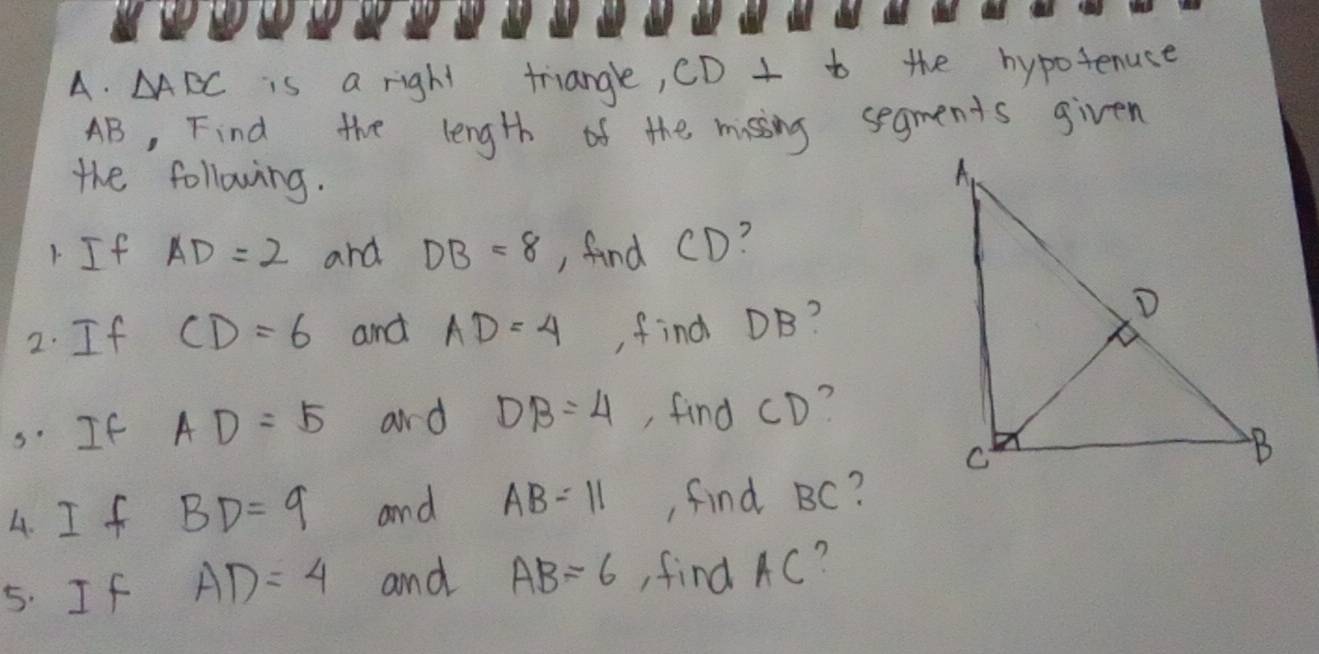 A. ΔABC is a right triangle, CD ⊥ to the hypotenuse
AB, Find the length of the missing segments given
the following.
1. If AD = 2 and DB = 8, find CD?
2. If CD = 6 and AD = 4, find DB?
3. If AD = 5 and DB = 4, find CD?
4. If BD = 9 and AB = 11, find BC?
5. If AD = 4 and AB = 6, find AC?
A
D
C
B